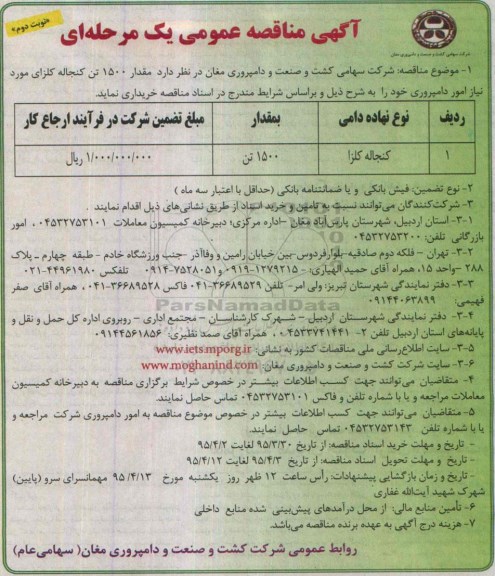 «نوبت دوم»
آگهی مناقصه عمومی یک مرحله‌ای
شرکت سهامی کشت و صنعت و دامپروری مغان
۱- موضوع مناقصه: شرکت سهامی کشت و صنعت و دامپروری مغان در نظر دارد مقدار ۱۵۰۰ تن کنجاله کلزای مورد
نیاز امور دامپروری خود را به شرح ذیل و براساس شرایط مندرج در اسناد مناقصه خریداری نماید.
ردیف نوع نهاده دامی بمقدار مبلغ تضمین شرکت در فرآیند ارجاع کار
۱ کنجاله کلزا ۱۵۰۰ تن ۱/۰۰۰/۰۰۰/۰۰۰ ریال
۲- نوع تضمین: فیش بانکی و یا ضمانتنامه بانکی (حداقل با اعتبار سه ماه )
۳- شرکت‌کنندگان می‌توانند نسبت به تامین و خرید اسناد از طریق نشانی‌های ذیل اقدام نمایند .
۳-۱- استان اردبیل، شهرستان پارس‌آباد مغان -اداره مرکزی؛ دبیرخانه کمیسیون معاملات ۰۴۵۳۲۷۵۳۱۰۱ ، امور
بازرگانی تلفن: ۰۴۵۳۲۷۵۳۲۰۰
۳-۲- تهران - فلکه دوم صادقیه-بلوارفردوس-بین خیابان رامین و وفاآذر -جنب ورزشگاه خادم - طبقه چهارم ـ پلاک
۲۸۸ -واحد ۱۵، همراه آقای حمید الهیاری: ۰۹۱۹-۱۲۷۹۲۱۵ و ۰۹۱۴-۷۵۲۸۰۵۱ تلفکس ۴۴۹۶۱۹۸۰-۰۲۱
۳-۳- دفتر نمایندگی شهرستان تبریز، ولی امر- تلفن ۳۶۶۸۹۵۲۹-۰۴۱ فاکس ۳۶۶۸۹۵۲۸-۰۴۱ ، همراه آقای صفر
فهیمی: ۰۹۱۴۴۰۶۳۸۹۹
ParsNamadData
۳-۴- دفتر نمایندگی شهرستان اردبیل - شهرک کارشناسان - مجتمع اداری - روبروی اداره کل حمل و نقل و
پایانه‌های استان اردبیل تلفن ۲- ۰۴۵۳۳۷۴۱۴۴۱ ، همراه آقای صمد نظیری: ۰۹۱۴۴۵۶۱۸۵۶
۳-۵- سایت اطلاع‌رسانی ملی مناقصات کشور به نشانی: www.iets.mporg.ir
۳-۶- سایت شرکت کشت و صنعت و دامپروری مغان: www.moghanind.com
۴- متقاضیان می‌توانند جهت کسب اطلاعات بیشتر در خصوص شرایط برگزاری مناقصه به دبیرخانه کمیسیون
معاملات مراجعه و یا با شماره تلفن و فاکس ۰۴۵۳۲۷۵۳۱۰۱ تماس حاصل نمایند.
۵- متقاضیان می‌توانند جهت کسب اطلاعات بیشتر در خصوص موضوع مناقصه به امور دامپروری شرکت مراجعه و
یا با شماره تلفن ۰۴۵۳۲۷۵۳۱۴۳ تماس حاصل نمایند.
- تاریخ و مهلت خرید اسناد مناقصه: از تاریخ ۹۵/۳/۳۰ لغایت ۹۵/۴/۲
- تاریخ و مهلت تحویل اسناد مناقصه: از تاریخ ۹۵/۴/۳ لغایت ۹۵/۴/۱۲
- تاریخ و زمان بازگشایی پیشنهادات: رأس ساعت ۱۲ ظهر روز یکشنبه مورخ ۹۵/۴/۱۳ مهمانسرای سرو (پایین)
شهرک شهید آیت‌الله غفاری
۶- تأمین منابع مالی: از محل درآمدهای پیش‌بینی شده منابع داخلی
۷- هزینه درج آگهی به عهده برنده مناقصه می‌باشد.
روابط عمومی شرکت کشت و صنعت و دامپروری مغان( سهامی‌عام)